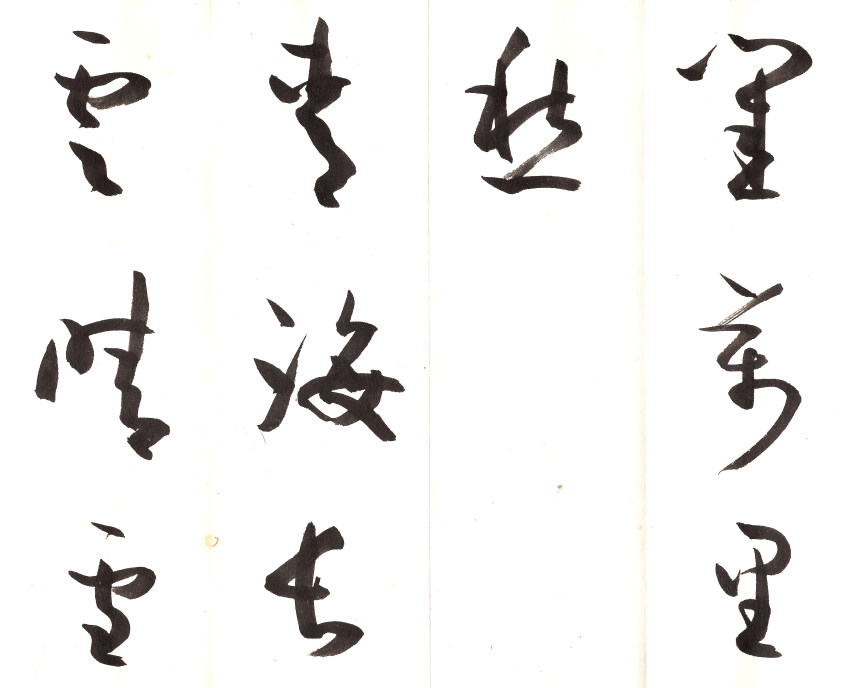 閨萬里
愁
青海長
雲暗雪